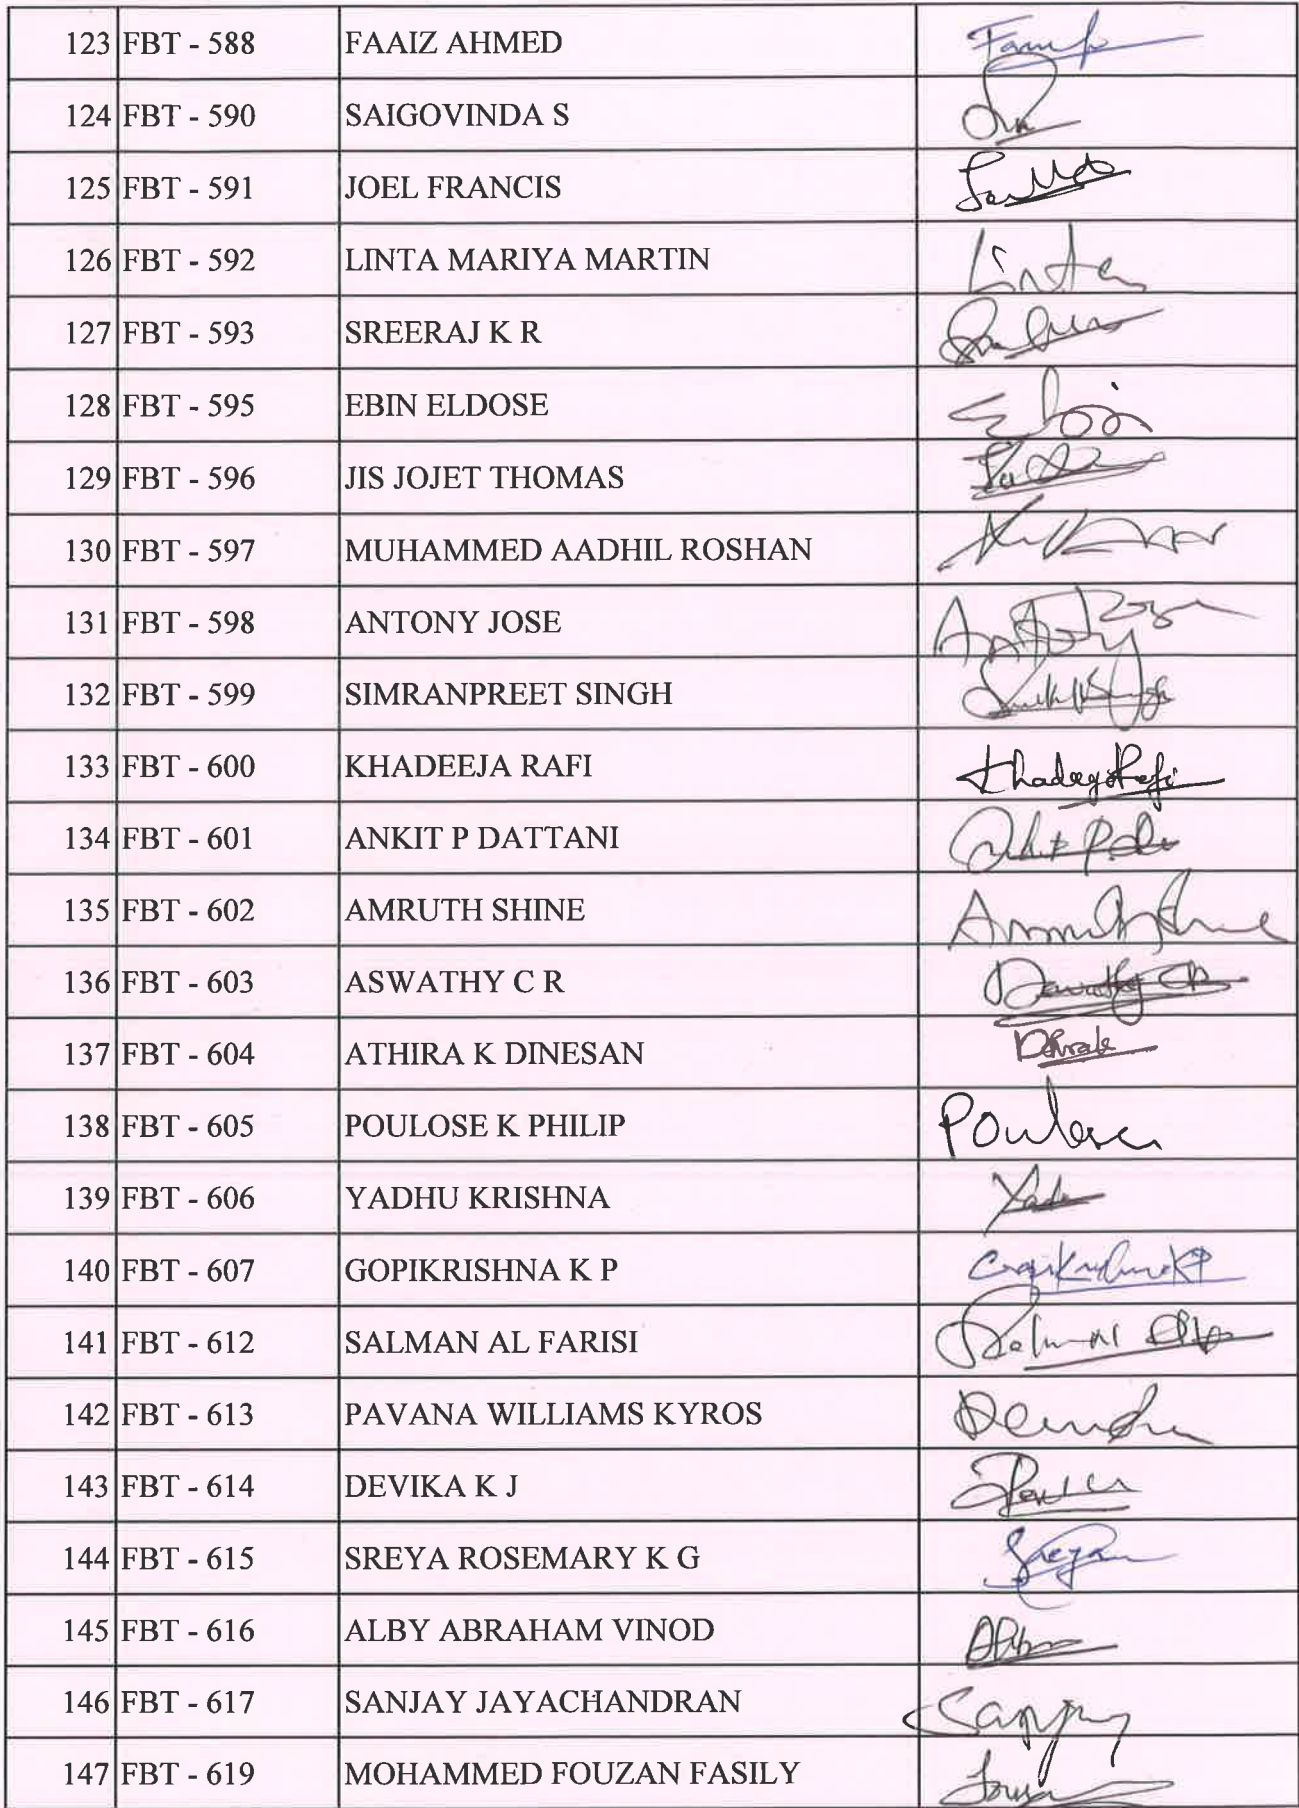 123 FBT - 588 FAAIZ AHMED
124 FBT - 590 SAIGOVINDA S
125 FBT - 591 JOEL FRANCIS
126 FBT - 592 LINTA MARIYA MARTIN Linta
127 FBT - 593 SREERAJ K R
128 FBT - 595 EBIN ELDOSE Ebin
129 FBT - 596 JIS JOJET THOMAS
130 FBT - 597 MUHAMMED AADHIL ROSHAN
131 FBT - 598 ANTONY JOSE Antony
132 FBT - 599 SIMRANPREET SINGH
133 FBT - 600 KHADEEJA RAFI
134 FBT - 601 ANKIT P DATTANI
135 FBT - 602 AMRUTH SHINE
136 FBT - 603 ASWATHY C R
137 FBT - 604 ATHIRA K DINESAN
138 FBT - 605 POULOSE K PHILIP Poulose
139 FBT - 606 YADHU KRISHNA
140 FBT - 607 GOPIKRISHNA K P
141 FBT - 612 SALMAN AL FARISI
142 FBT - 613 PAVANA WILLIAMS KYROS
143 FBT - 614 DEVIKA K J
144 FBT - 615 SREYA ROSEMARY K G Sreya
145 FBT - 616 ALBY ABRAHAM VINOD
146 FBT - 617 SANJAY JAYACHANDRAN Sanjay
147 FBT - 619 MOHAMMED FOUZAN FASILY